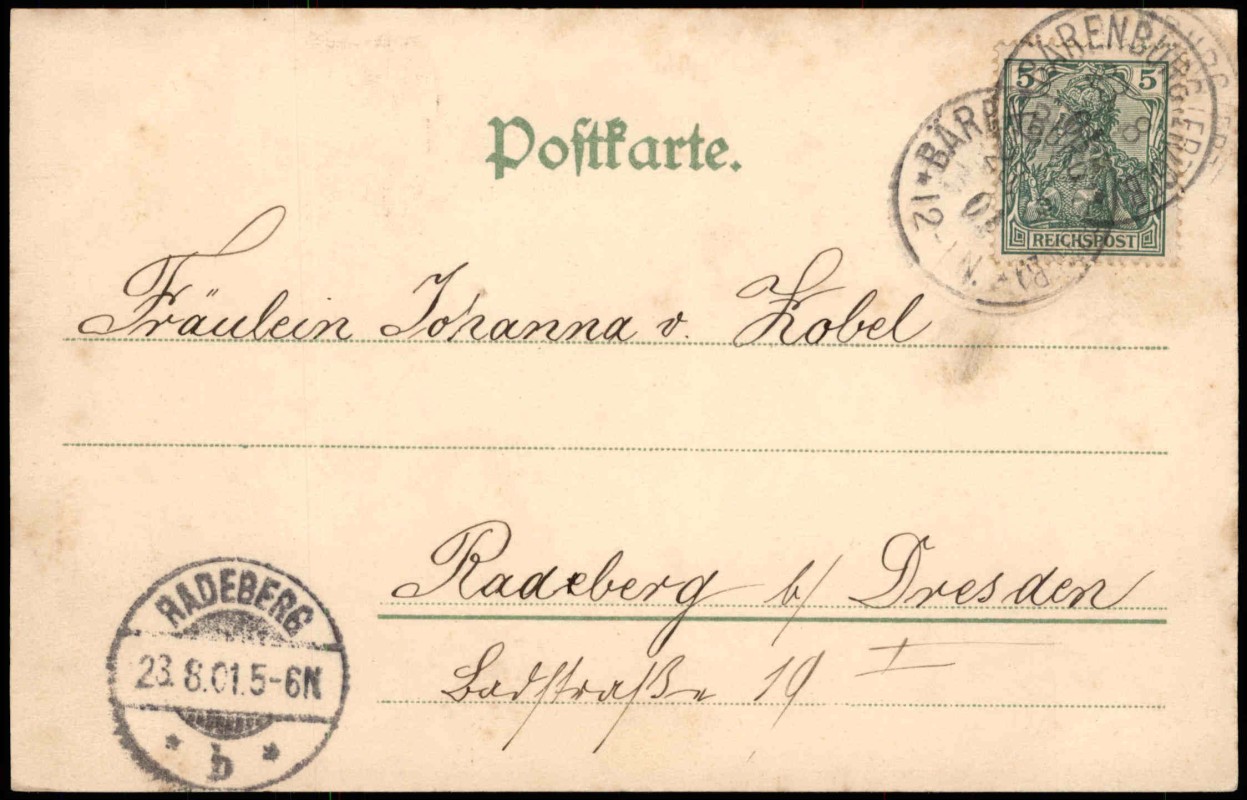 Postkarte.
5 5
REICHSPOST
BÄRENBURG
Fräulein Johanna v. Zobel
Radeberg b/ Dresden
Badstraße 19 I
RADEBERG
23.8.01.5-6N
* b *